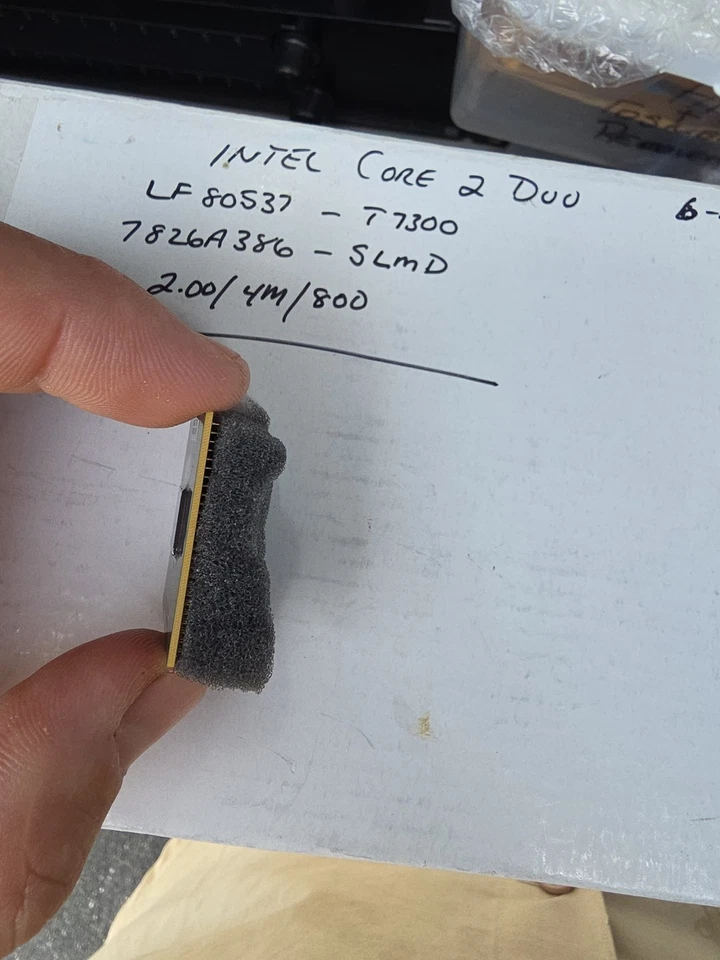 INTEL CORE 2 DUO
LF80537 - T7300
7826A386 - SLMD
2.00/4M/800
6-